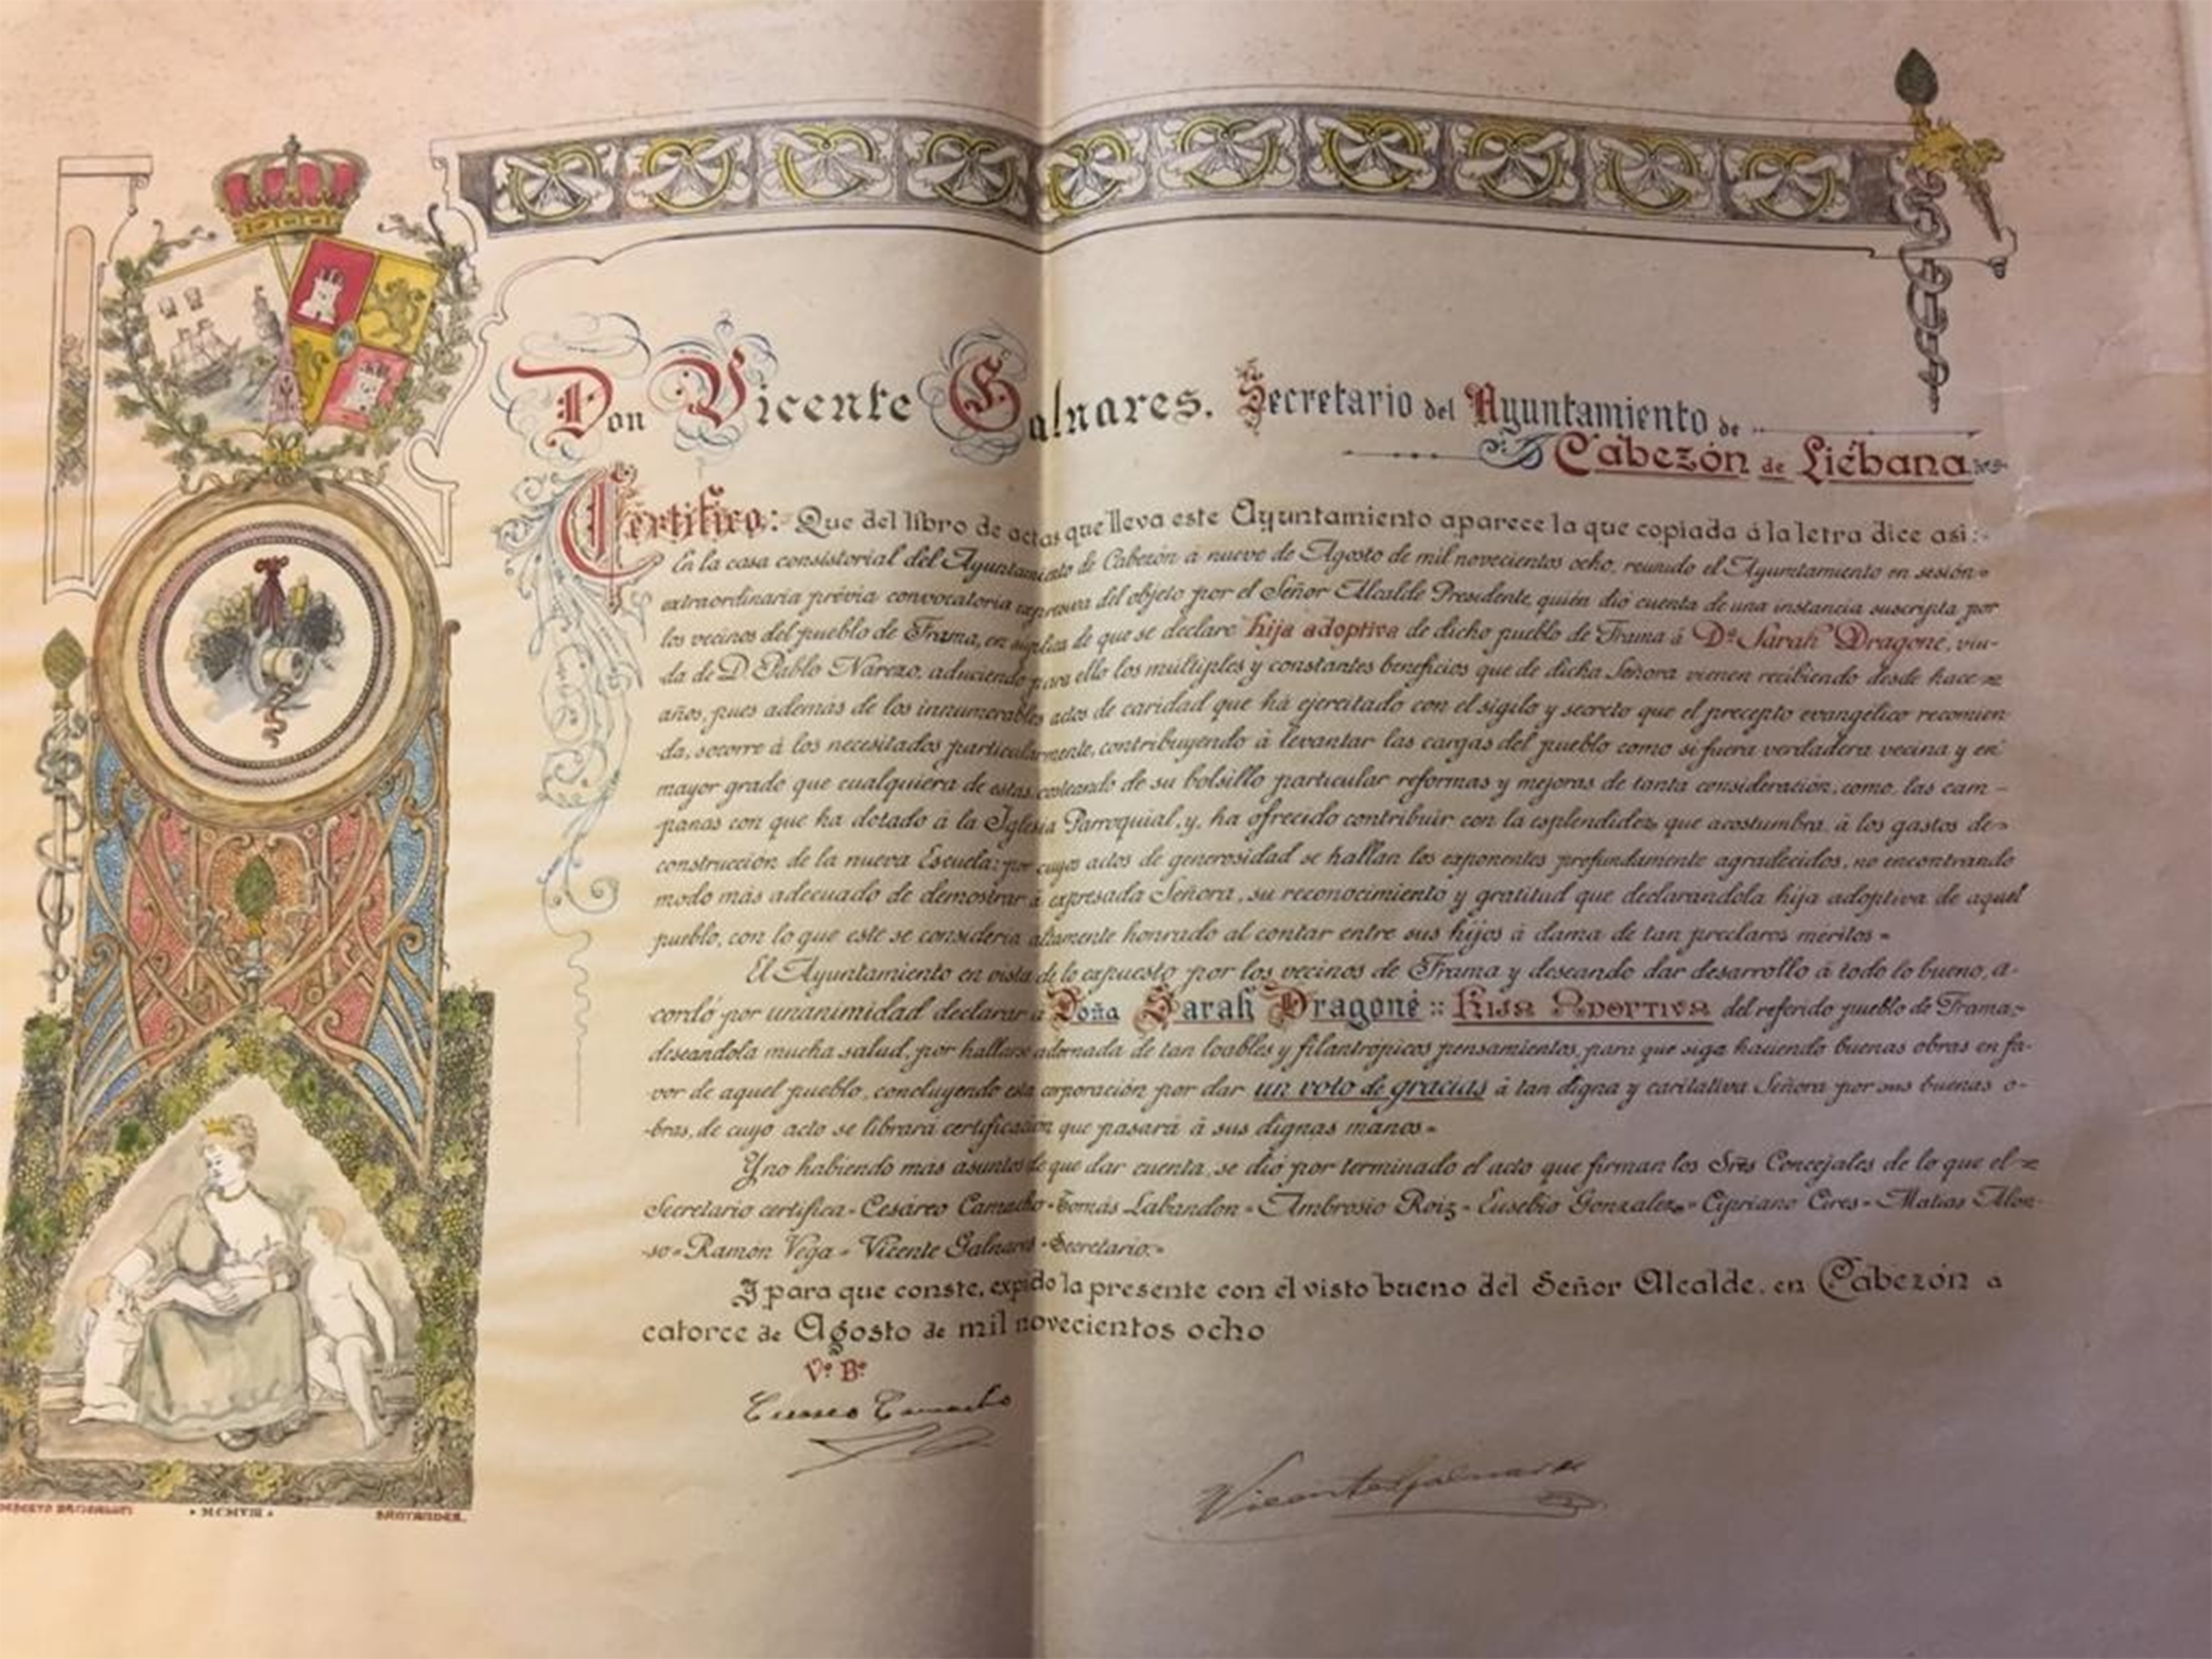 Don Vicente Galnares. Secretario del Ayuntamiento de
Cabezón de Liébana
Certifico: Que del libro de actas que lleva este Ayuntamiento aparece la que copiada á la letra dice asi:
En la casa consistorial del Ayuntamiento de Cabezón á nueve de Agosto de mil novecientos ocho, reunido el Ayuntamiento en sesión
extraordinaria prévia convocatoria expresiva del objeto por el Señor Alcalde Presidente, quién dió cuenta de una instancia suscripta por
los vecinos del pueblo de Frama, en suplica de que se declare hija adoptiva de dicho pueblo de Frama á Dª Sarah Dragoné, viu-
da de D. Pablo Narezo, aduciendo para ello los múltiples y constantes beneficios que de dicha Señora vienen recibiendo desde hace
años, pues además de los innumerables actos de caridad que há ejercitado con el sigilo y secreto que el precepto evangélico recomien
da, socorre á los necesitados particularmente, contribuyendo á levantar las cargas del pueblo como si fuera verdadera vecina y en
mayor grado que cualquiera de estas, costeando de su bolsillo particular reformas y mejoras de tanta consideración, como, las cam-
panas con que ha dotado á la Iglesia Parroquial, y, ha ofrecido contribuir con la esplendidez que acostumbra, á los gastos de
construcción de la nueva Escuela; por cuyos actos de generosidad se hallan los exponentes profundamente agradecidos, no encontrando
modo más adecuado de demostrar á expresada Señora, su reconocimiento y gratitud que declarandola hija adoptiva de aquel
pueblo, con lo que este se consideria altamente honrado al contar entre sus hijos á dama de tan preclaros méritos =
El Ayuntamiento en vista de lo expuesto por los vecinos de Frama y deseando dar desarrollo á todo lo bueno, a-
cordó por unanimidad declarar á Doña Sarah Dragoné :: Hija Adoptiva del referido pueblo de Frama
deseandola mucha salud, por hallarse adornada de tan loables y filantrópicos pensamientos, para que siga haciendo buenas obras en fa-
vor de aquel pueblo, concluyendo esta corporación por dar un voto de gracias á tan digna y caritativa Señora por sus buenas o-
bras, de cuyo acto se librará certificación que pasará á sus dignas manos =
Y no habiendo más asuntos de que dar cuenta, se dió por terminado el acto que firman los Sres Concejales de lo que el
Secretario certifica = Cesáreo Camacho = Tomás Labandon = Ambrosio Roiz = Eusebio Gonzalez = Cipriano Cires = Matias Alon-
so = Ramón Vega = Vicente Galnares = Secretario. =
I para que conste, expido la presente con el visto bueno del Señor Alcalde, en Cabezón a
catorce de Agosto de mil novecientos ocho
Vº Bº
Cesareo Camacho
Vicente Galnares
MCMVIII
SANTANDER.